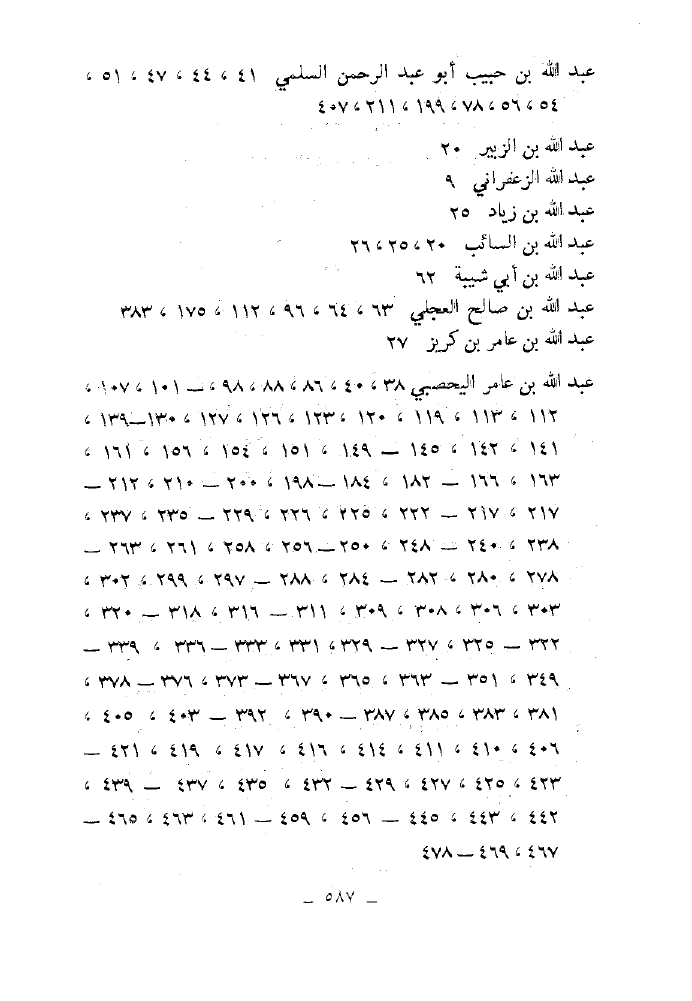 عبد الله بن حبيب أبو عبد الرحمن السلمي ٤١ ، ٤٤ ، ٤٧ ، ٥١ ،
٥٤ ، ٥٦ ، ٧٨ ، ١٩٩ ، ٢١١ ، ٤٠٧
عبد الله بن الزبير ٢٠
عبد الله الزعفراني ٩
عبد الله بن زياد ٢٥
عبد الله بن السائب ٢٠ ، ٢٥ ، ٢٦
عبد الله بن أبي شيبة ٦٢
عبد الله بن صالح العجلي ٦٣ ، ٦٤ ، ٩٦ ، ١١٢ ، ١٧٥ ، ٣٨٣
عبد الله بن عامر بن كريز ٢٧
عبد الله بن عامر اليحصبي ٣٨ ، ٤٠ ، ٨٦ ، ٨٨ ، ٩٨ ، – ١٠١ ، ١٠٧ ،
١١٢ ، ١١٣ ، ١١٩ ، ١٢٠ ، ١٢٣ ، ١٢٦ ، ١٢٧ ، ١٣٠–١٣٩ ،
١٤١ ، ١٤٢ ، ١٤٥ – ١٤٩ ، ١٥١ ، ١٥٤ ، ١٥٦ ، ١٦١ ،
١٦٣ ، ١٦٦ – ١٨٢ ، ١٨٤ –١٩٨ ، ٢٠٠ – ٢١٠ ، ٢١٢ –
٢١٧ ، ٢١٧ – ٢٢٢ ، ٢٢٥ ، ٢٢٦ ، ٢٢٩ – ٢٣٥ ، ٢٣٧ ،
٢٣٨ ، ٢٤٠ – ٢٤٨ ، ٢٥٠–٢٥٦ ، ٢٥٨ ، ٢٦١ ، ٢٦٣ –
٢٧٨ ، ٢٨٠ ، ٢٨٢ – ٢٨٤ ، ٢٨٨ – ٢٩٧ ، ٢٩٩ ، ٣٠٢ ،
٣٠٣ ، ٣٠٦ ، ٣٠٨ ، ٣٠٩ ، ٣١١ – ٣١٦ ، ٣١٨ – ٣٢٠ ،
٣٢٢ – ٣٢٥ ، ٣٢٧ – ٣٢٩ ، ٣٣١ ، ٣٣٣ – ٣٣٦ ، ٣٣٩ –
٣٤٩ ، ٣٥١ – ٣٦٣ ، ٣٦٥ ، ٣٦٧ – ٣٧٣ ، ٣٧٦ – ٣٧٨ ،
٣٨١ ، ٣٨٣ ، ٣٨٥ ، ٣٨٧ – ٣٩٠ ، ٣٩٢ – ٤٠٣ ، ٤٠٥ ،
٤٠٦ ، ٤١٠ ، ٤١١ ، ٤١٤ ، ٤١٦ ، ٤١٧ ، ٤١٩ ، ٤٢١ –
٤٢٣ ، ٤٢٥ ، ٤٢٧ ، ٤٢٩ – ٤٣٢ ، ٤٣٥ ، ٤٣٧ – ٤٣٩ ،
٤٤٢ ، ٤٤٣ ، ٤٤٥ – ٤٥٦ ، ٤٥٩ – ٤٦١ ، ٤٦٣ ، ٤٦٥ –
٤٦٧ ، ٤٦٩ – ٤٧٨
– ٥٨٧ –